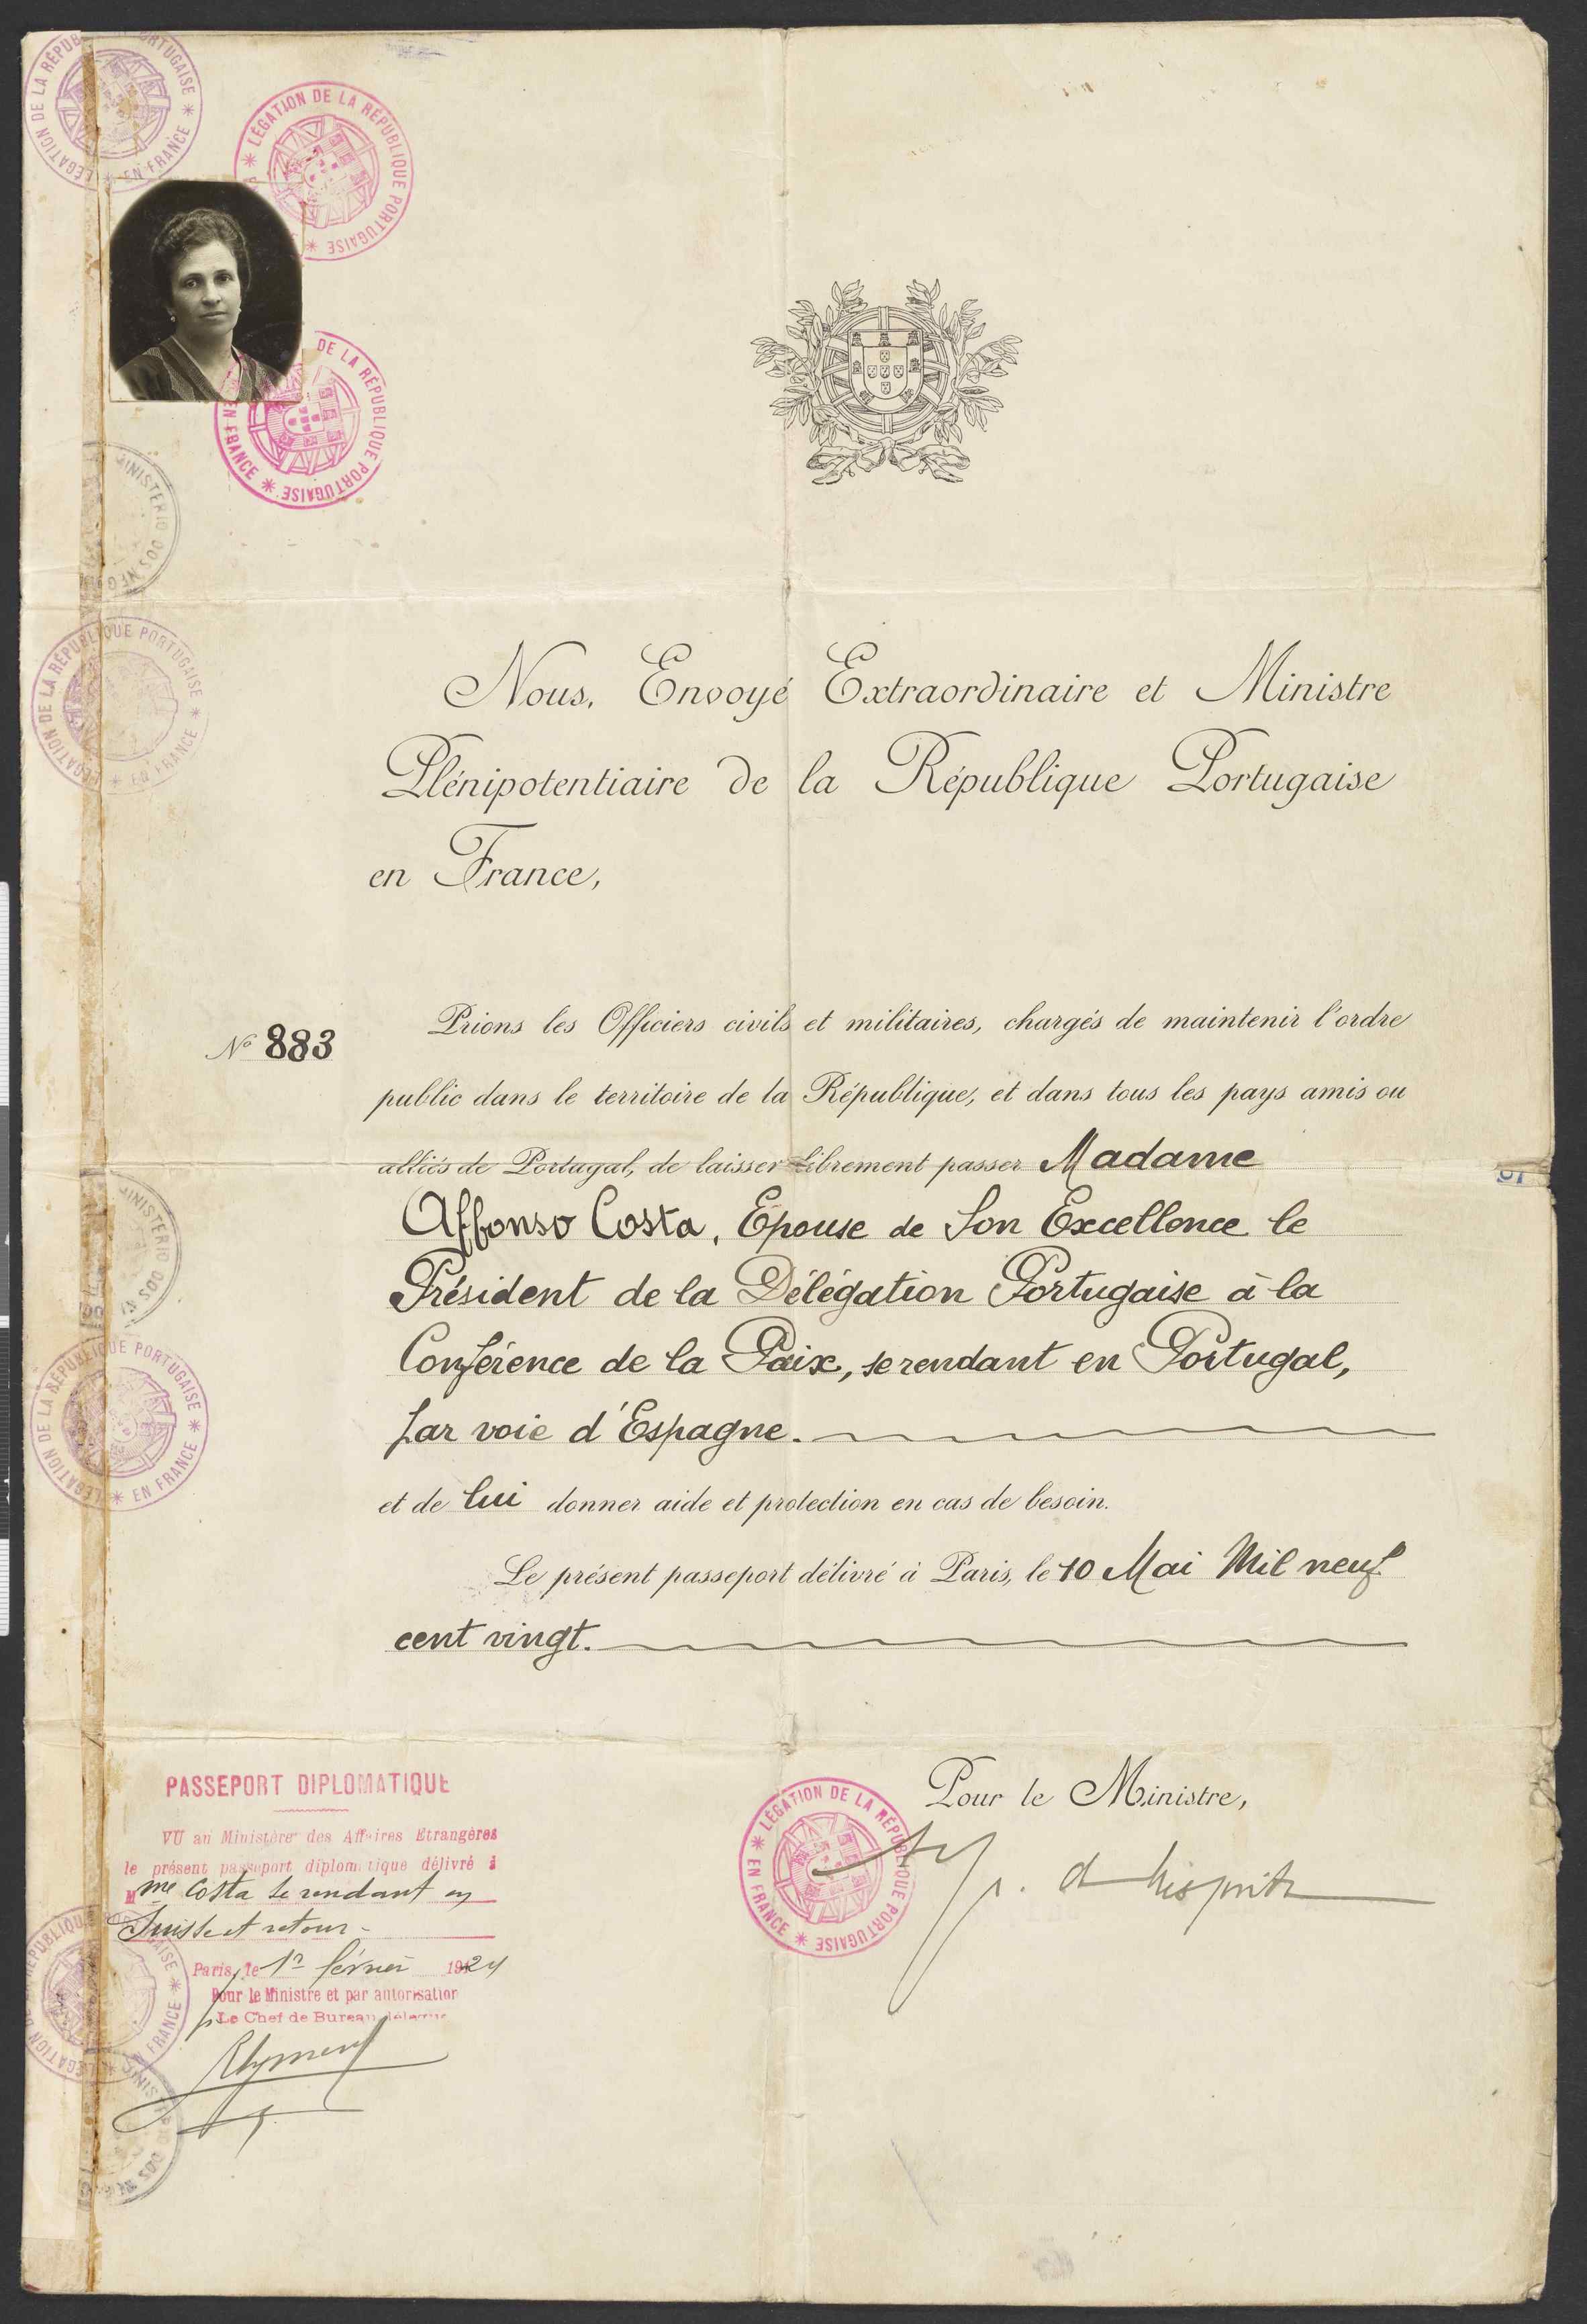 LÉGATION DE LA RÉPUB
RTUGAISE * EN FRANCE *
* LÉGATION DE LA RÉPUBLIQUE PORTUGAISE *
DE LA RÉPUBLIQUE PORTUGAISE * EN FRANCE
MINISTERIO DOS NEG
LÉGATION DE LA RÉPUBLIQUE PORTUGAISE * EN FRANCE *
Nous, Envoyé Extraordinaire et Ministre
Plénipotentiaire de la République Portugaise
en France,
Nº 883
Prions les Officiers civils et militaires, chargés de maintenir l'ordre
public dans le territoire de la République, et dans tous les pays amis ou
alliés de Portugal, de laisser librement passer Madame
Affonso Costa, Epouse de Son Excellence le
Président de la Délégation Portugaise à la
Conférence de la Paix, se rendant en Portugal,
par voie d'Espagne.
et de lui donner aide et protection en cas de besoin.
Le présent passeport délivré à Paris, le 10 Mai Mil neuf
cent vingt.
MINISTERIO DOS
LÉGATION DE LA RÉPUBLIQUE PORTUGAISE * EN FRANCE *
Pour le Ministre,
* LÉGATION DE LA RÉPUBLIQUE PORTUGAISE * EN FRANCE
PASSEPORT DIPLOMATIQUE
VU au Ministère des Affaires Etrangères
le présent passeport diplomatique délivré à
Mme Costa se rendant en
Suisse et retour
Paris, le 1er février 1924
Pour le Ministre et par autorisation
Le Chef de Bureau délégué